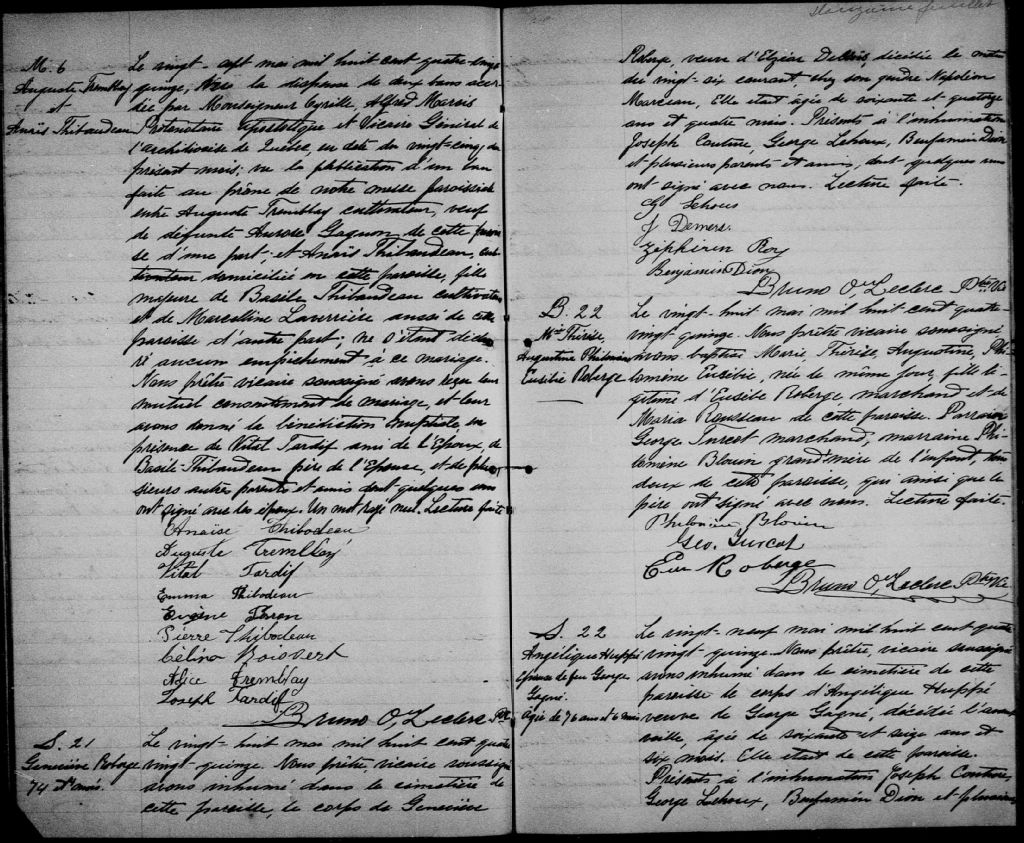 M. 6
Auguste Tremblay
et
Anaïs Thibaudeau
Le vingt-sept mai mil huit cent quatre-vingt
quinze, Vu la dispense de deux bans accor
dée par Monseigneur Cyrille, Alfred Marois
Protonotaire apostolique et Vicaire Général de
l'archidiocèse de Québec, en date du vingt-cinq du
présent mois; vu la publication d'un ban
faite au prône de notre messe paroissiale
entre Auguste Tremblay cultivateur, veuf
de défunte Aurore Gagnon de cette parois
se d'une part; et Anaïs Thibaudeau,
domiciliée en cette paroisse, fille
majeure de Basile Thibaudeau cultivateur
et de Marcelline Laverrière aussi de cette
paroisse d'autre part; ne s'étant décou
ri aucun empêchement à ce mariage.
Nous prêtre vicaire soussigné avons reçu leur
mutuel consentement de mariage, et leur
avons donné la bénédiction nuptiale en
présence de Vital Tardif ami de l'Epoux, de
Basile Thibaudeau père de l'Epouse, et de plu
sieurs autres parents et amis dont quelques uns
ont signé avec les époux. Un mot rayé nul. Lecture faite
Anaïse Thibodeau
Auguste Tremblay
Vital Tardif
Emma Thibodeau
Eugène
Pierre Thibodeau
Célina Boisvert
Alice Tremblay
Joseph Tardif
Bruno O. Leclerc Ptre
S. 21
Geneviève Roberge
74 ans
Le vingt-huit mai mil huit cent quatre
vingt-quinze. Nous prêtre, vicaire soussigné
avons inhumé dans le cimetière de
cette paroisse, le corps de Geneviève
feuillet
Roberge, veuve d'Elzéar, décédée le
du vingt-six courant, chez son gendre Napoléon
Marceau, Elle était âgée de soixante et quatorze
ans et quatre mois. Présents à l'inhumation
Joseph Couture, George Lehoux, Benjamin Dion
et plusieurs parents et amis, dont quelques uns
ont signé avec nous. Lecture faite.
Lehoux
J Demers
Zéphirin Roy
Benjamin Dion
Bruno O. Leclerc Ptre Vic
B. 22
Mie Thérèse,
Augustine Philomène
Eusébie Roberge
Le vingt-huit mai mil huit cent quatre-
vingt quinze. Nous prêtre vicaire soussigné
avons baptisé Marie, Thérèse, Augustine, Phi
lomène Eusébie, née le même jour, fille lé
gitime d'Eusèbe Roberge marchand et de
Maria Rousseau de cette paroisse. Parrain
George Turcot marchand, marraine Phi
lomène Blouin grand'mère de l'enfant, tous
deux de cette paroisse, qui ainsi que le
père ont signé avec nous. Lecture faite.
Philomène Blouin
Geo. Turcot
Eus Roberge
Bruno O. Leclerc Ptre Vic
S. 22
Angélique Huppé
épouse de feu George
Gagné.
Agée de 76 ans et 6 mois
Le vingt-neuf mai mil huit cent quatre
vingt-quinze. Nous prêtre, vicaire soussigné
avons inhumé dans le cimetière de cette
paroisse le corps d'Angélique Huppé
veuve de George Gagné, décédée l'avant
veille, âgée de soixante et seize ans et
six mois. Elle était de cette paroisse.
Présents à l'inhumation Joseph Couture,
George Lehoux, Benjamin Dion et plusieurs